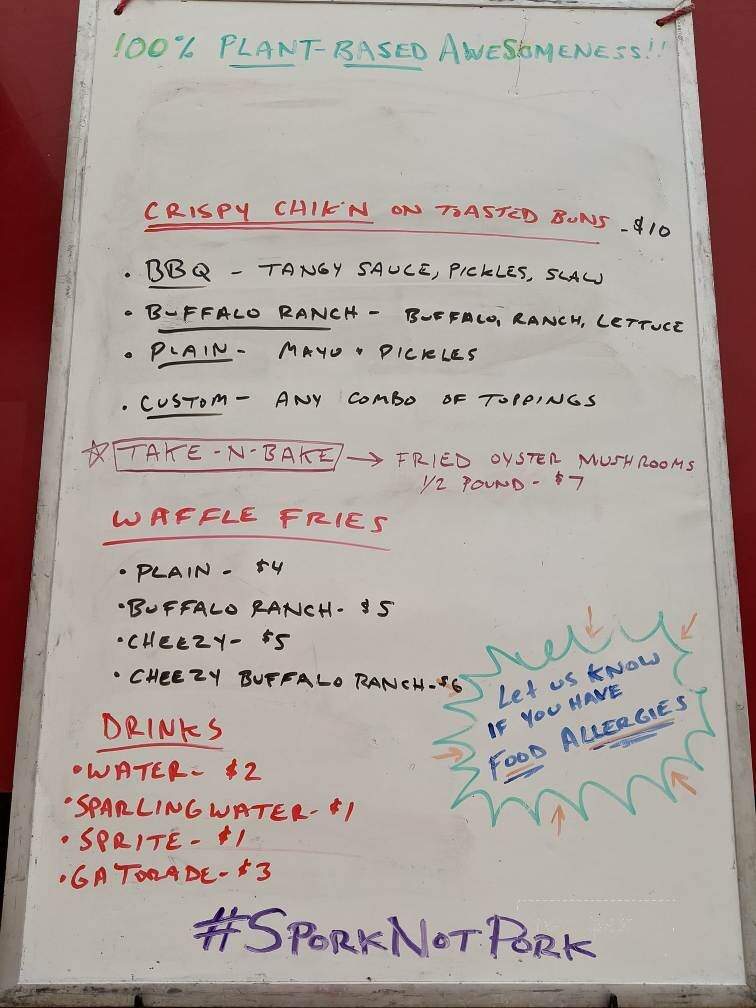 100% PLANT-BASED AWESOMENESS!!
CRISPY CHIK'N ON TOASTED BUNS - $10
• BBQ - TANGY SAUCE, PICKLES, SLAW
• BUFFALO RANCH - BUFFALO, RANCH, LETTUCE
• PLAIN - MAYO + PICKLES
• CUSTOM - ANY COMBO OF TOPPINGS
☆ TAKE-N-BAKE → FRIED OYSTER MUSHROOMS
1/2 POUND - $7
WAFFLE FRIES
• PLAIN - $4
• BUFFALO RANCH - $5
• CHEEZY - $5
• CHEEZY BUFFALO RANCH - $6
Let us KNOW
IF YOU HAVE
FOOD ALLERGIES
DRINKS
• WATER - $2
• SPARLING WATER - $1
• SPRITE - $1
• GATORADE - $3
#SPORKNOTPORK